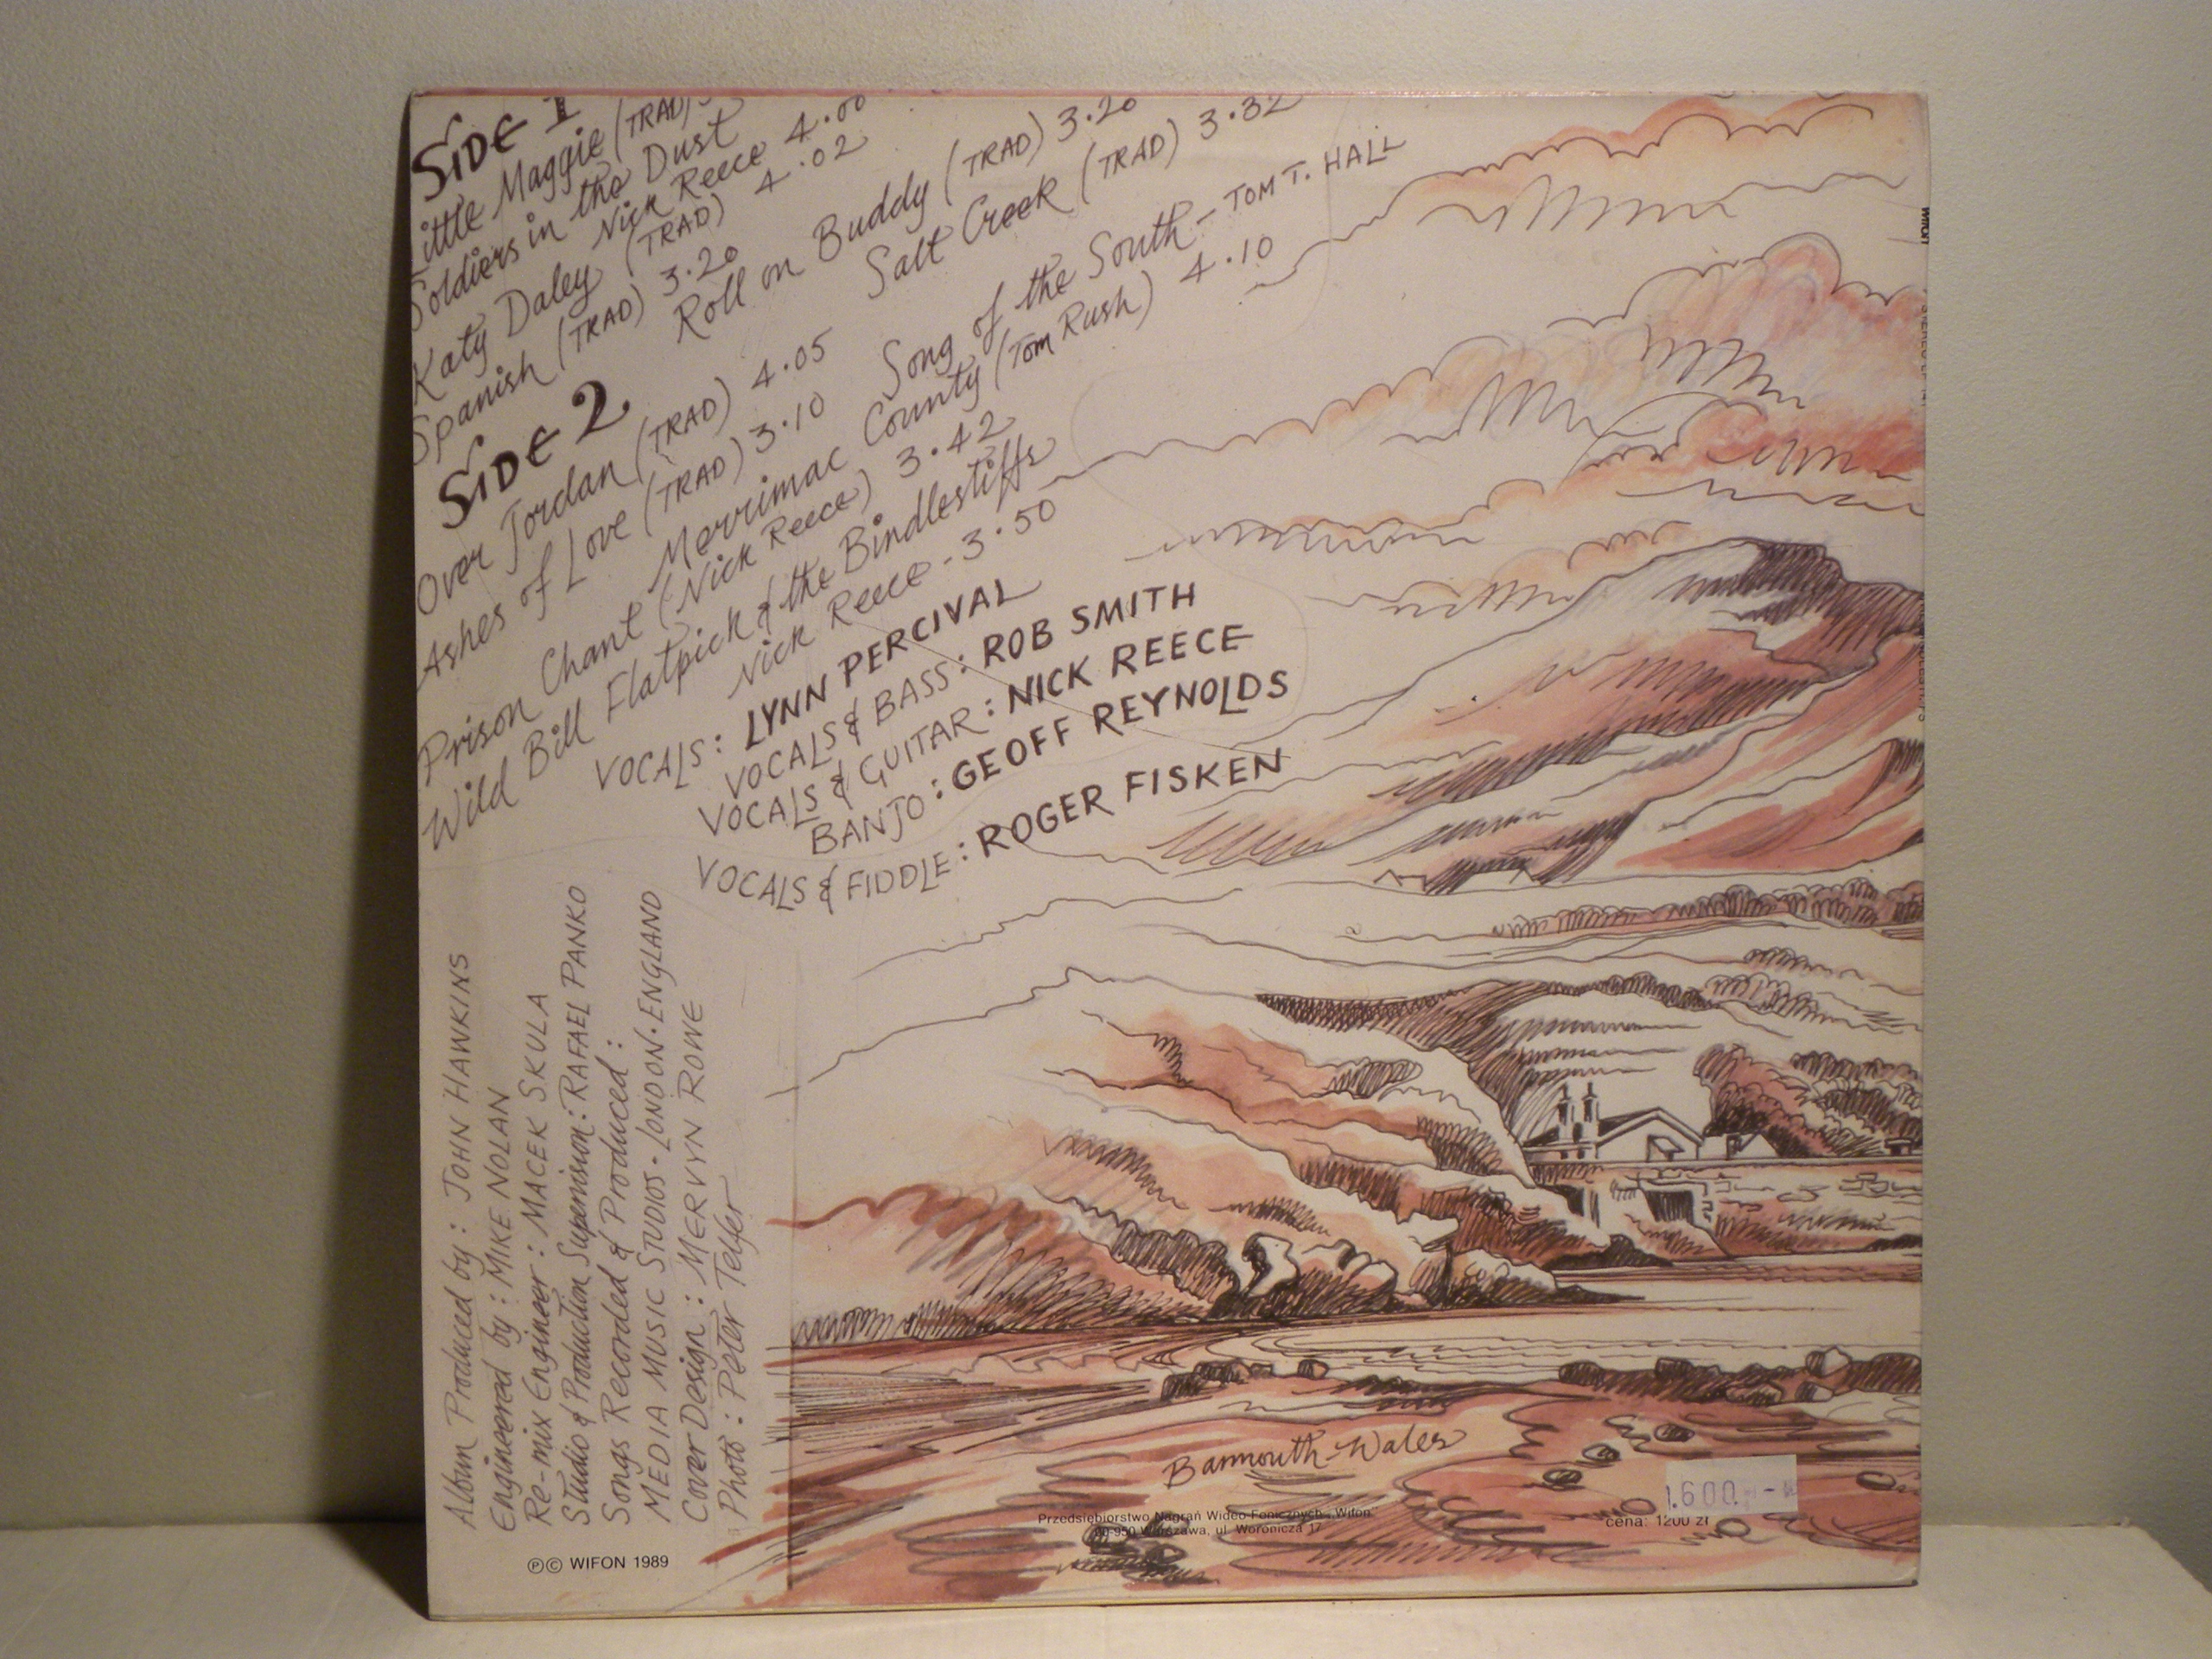 SIDE 1
Little Maggie (TRAD)
Soldiers in the Dust
Nick Reece 4.00
Katy Daley (TRAD) 4.02
Spanish (TRAD) 3.20
Roll on Buddy (TRAD) 3.20
Salt Creek (TRAD) 3.32
SIDE 2
Over Jordan (TRAD) 4.05
Ashes of Love (TRAD) 3.10
Song of the South - TOM T. HALL
Merrimac County (Tom Rush) 4.10
Prison Chant (Nick Reece) 3.42
Wild Bill Flatpick & the Bindlestiffs
Nick Reece - 3.50
VOCALS: LYNN PERCIVAL
VOCALS & BASS: ROB SMITH
VOCALS & GUITAR: NICK REECE
BANJO: GEOFF REYNOLDS
VOCALS & FIDDLE: ROGER FISKEN
Album Produced by: JOHN HAWKINS
Engineered by: MIKE NOLAN
Re-mix Engineer: MACEK SKULA
Studio & Production Supervision: RAFAEL PANKO
Songs Recorded & Produced:
MEDIA MUSIC STUDIOS. LONDON. ENGLAND
Cover Design: MERVYN ROWE
Photo: Peter Telfer
℗© WIFON 1989
Barmouth-Wales
Przedsiębiorstwo Nagrań Wideo-Fonicznych „Wifon"
00-950 Warszawa, ul. Woronicza 17
1.600.-
cena: 1200 zł
wifon